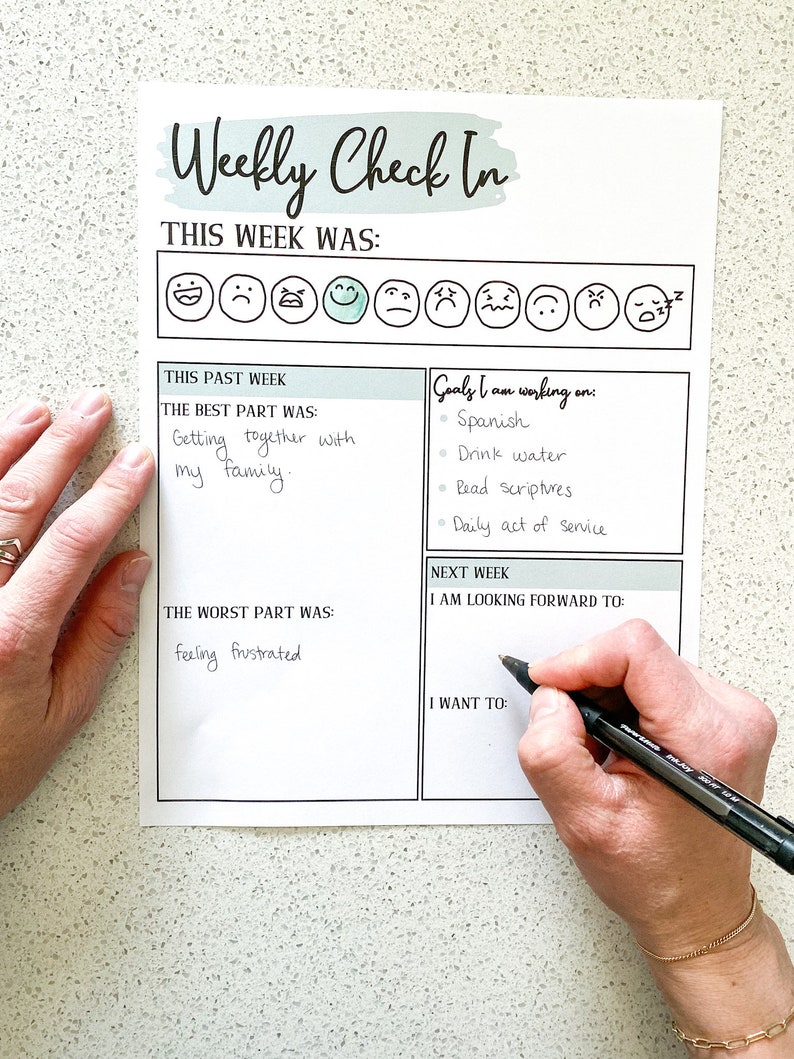 Weekly Check In
THIS WEEK WAS:
z z z
THIS PAST WEEK
THE BEST PART WAS:
Getting together with
my family.
THE WORST PART WAS:
feeling frustrated
Goals I am working on:
Spanish
Drink water
Read scriptures
Daily act of service
NEXT WEEK
I AM LOOKING FORWARD TO:
I WANT TO:
PAPER MATE InkJoy 300 RT 1.0 M